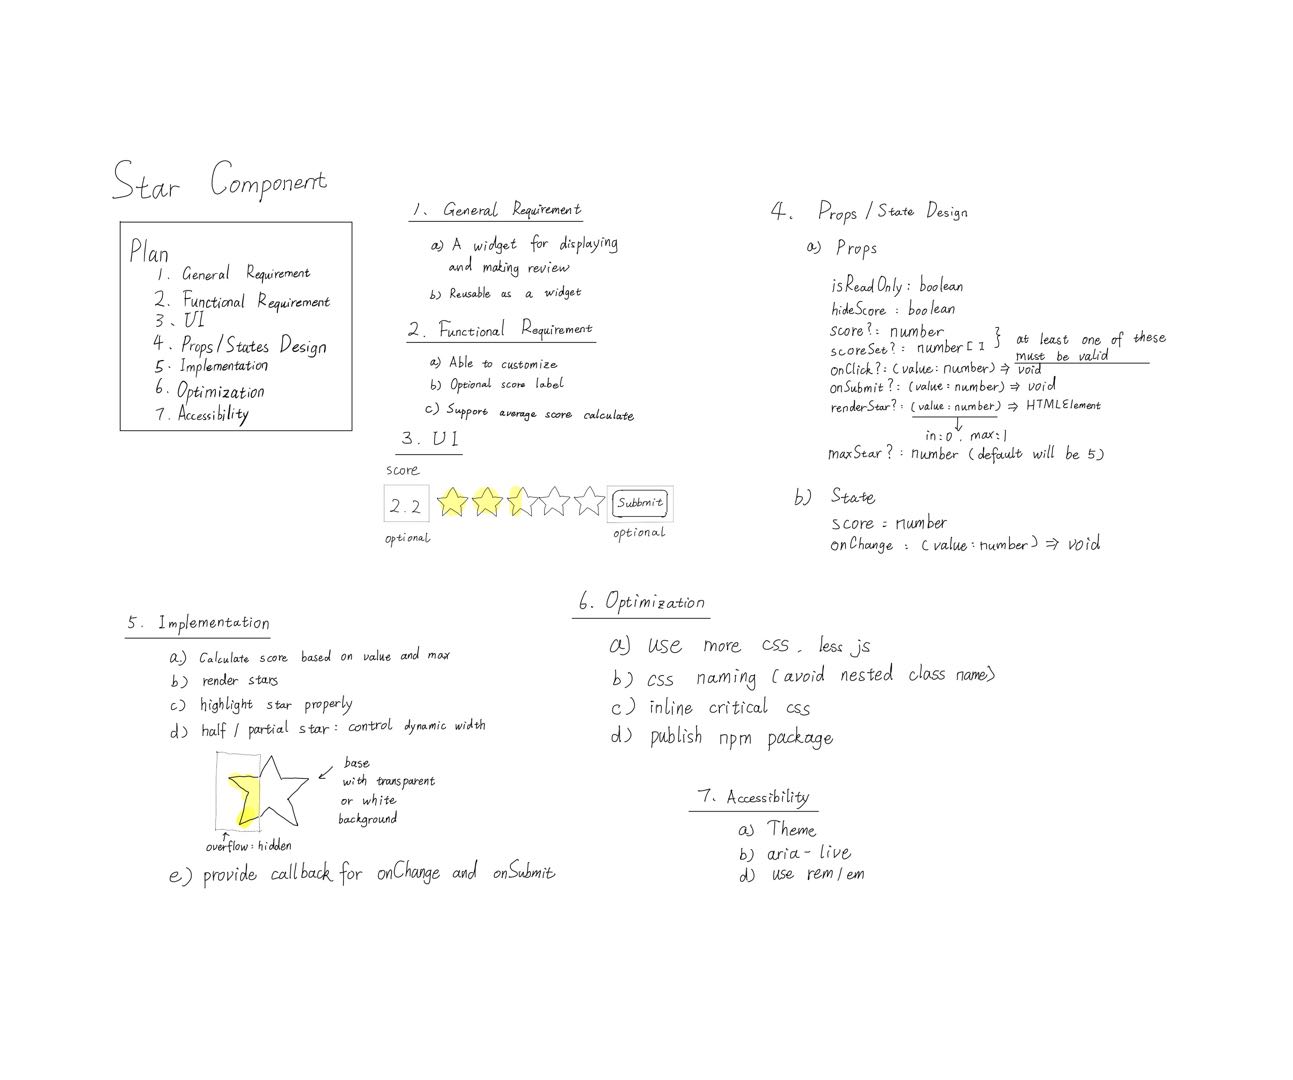 Star Component
Plan
1. General Requirement
2. Functional Requirement
3. UI
4. Props/States Design
5. Implementation
6. Optimization
7. Accessibility
1. General Requirement
a) A widget for displaying
and making review
b) Reusable as a widget
2. Functional Requirement
a) Able to customize
b) Optional score label
c) Support average score calculate
3. UI
score
2.2
Subbmit
optional
optional
4. Props/State Design
a) Props
isReadOnly: boolean
hideScore: boolean
score?: number
scoreSet?: number[]
} at least one of these
must be valid
onClick?: (value: number) ⇒ void
onSubmit?: (value: number) ⇒ void
renderStar?: (value: number) ⇒ HTMLElement
in:0. max:1
maxStar?: number (default will be 5)
b) State
score = number
onChange : (value: number) ⇒ void
5. Implementation
a.) Calculate score based on value and max
b) render stars
c) highlight star properly
d) half / partial star: control dynamic width
base
with transparent
or white
background
overflow: hidden
e) provide callback for onChange and onSubmit
6. Optimization
a) use more css. less js
b) css naming (avoid nested class name)
c) inline critical css
d) publish npm package
7. Accessibility
a) Theme
b) aria-live
d) use rem/em